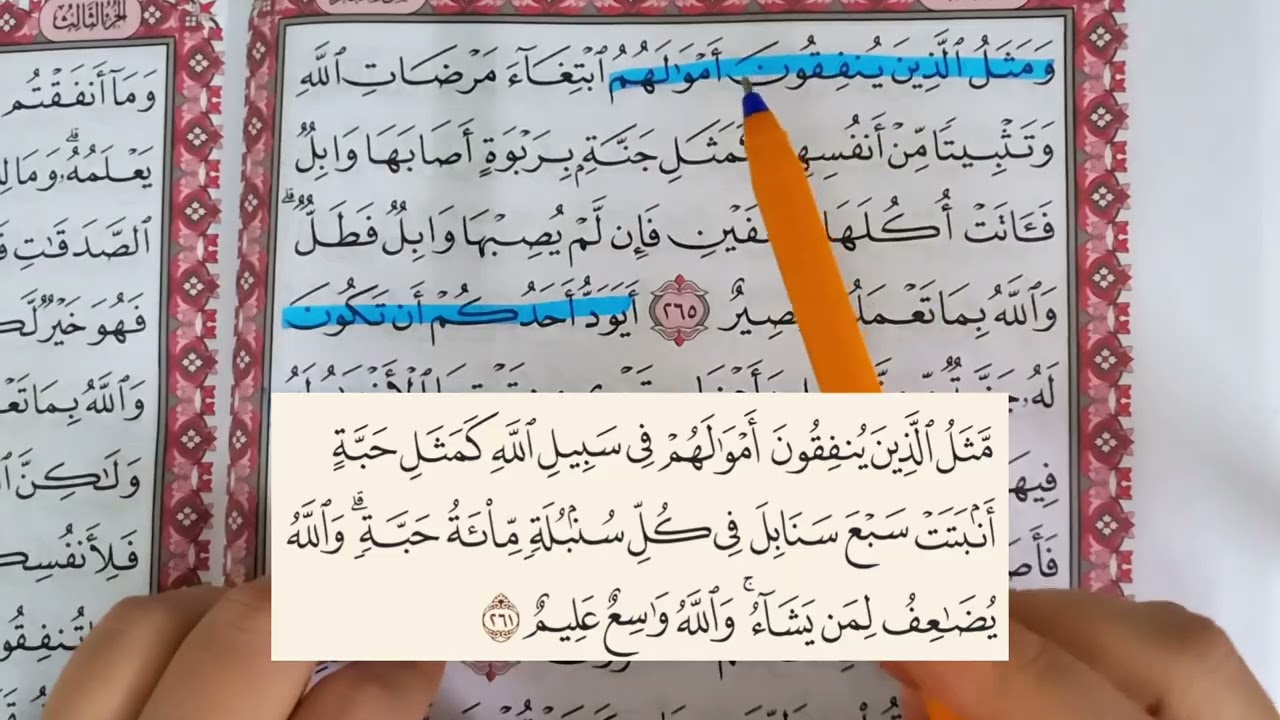 الجزء الثالث
وَمَثَلُ ٱلَّذِينَ يُنفِقُونَ أَمْوَٰلَهُمُ ٱبْتِغَآءَ مَرْضَاتِ ٱللَّهِ
وَتَثْبِيتًا مِّنْ أَنفُسِهِمْ كَمَثَلِ جَنَّةٍۭ بِرَبْوَةٍ أَصَابَهَا وَابِلٌ
فَـَٔاتَتْ أُكُلَهَا ضِعْفَيْنِ فَإِن لَّمْ يُصِبْهَا وَابِلٌ فَطَلٌّ ۗ
وَٱللَّهُ بِمَا تَعْمَلُونَ بَصِيرٌ ٢٦٥ أَيَوَدُّ أَحَدُكُمْ أَن تَكُونَ
لَهُۥ جَنَّةٌ
مَّثَلُ ٱلَّذِينَ يُنفِقُونَ أَمْوَٰلَهُمْ فِى سَبِيلِ ٱللَّهِ كَمَثَلِ حَبَّةٍ
أَنۢبَتَتْ سَبْعَ سَنَابِلَ فِى كُلِّ سُنۢبُلَةٍ مِّا۟ئَةُ حَبَّةٍ ۗ وَٱللَّهُ
يُضَٰعِفُ لِمَن يَشَآءُ ۚ وَٱللَّهُ وَٰسِعٌ عَلِيمٌ ٢٦١
وَمَآ أَنفَقْتُم
يَعْلَمُهُۥ ۗ وَمَا
ٱلصَّدَقَٰتِ
فَهُوَ خَيْرٌ
وَٱللَّهُ بِمَا
وَلَٰكِنَّ
فَلِأَنفُسِ
تُنفِقُو